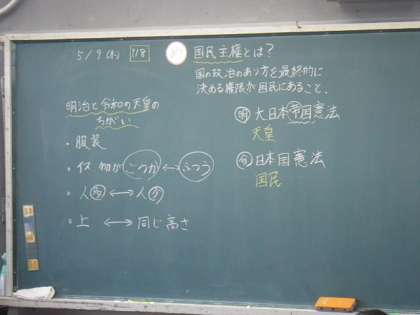 5/9(木)
118
明治と令和の天皇の
ちがい
・服装
・イス 物が ごうか ↔ ふつう
・人 多 ↔ 人 少
・上 ↔ 同じ高さ
国民主権とは?
国の政治のあり方を最終的に
決める権限が国民にあること。
明 大日本帝国憲法
天皇
令 日本国憲法
国民